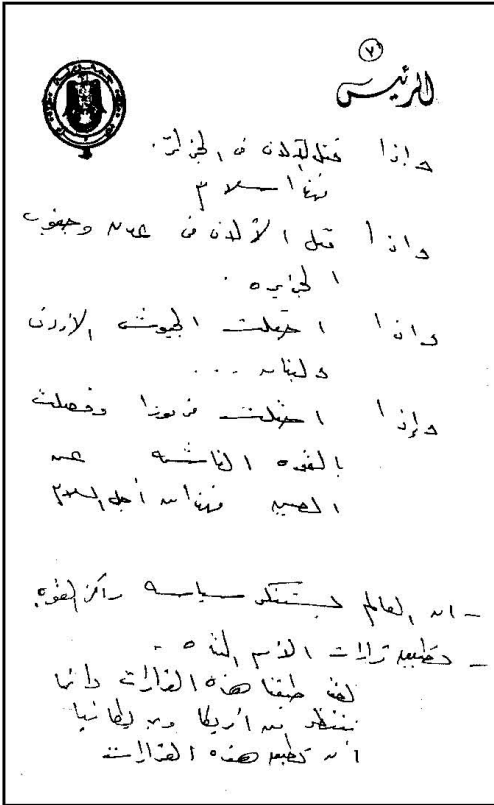 ٧
الرئيس
وإذا قتل الآلاف فى الجزائر.
فهذا سلام
وإذا قتل الألاف فى عدن وجنوب
الجزيره.
وإذا احتلت الجيوش الأردن
ولبنان ...
وإذا احتلت فرموزا وفصلت
بالقوه الغاشمه عن
الصين فهذا من أجل السلام
- ان العالم يستنكر سياسه مراكز القوه.
- تطبيق قرارات الأمم المتحده -
لقد طبقنا هذه القرارات دائما
ننتظر من أمريكا ومن بريطانيا
أن تطبق هذه القرارات